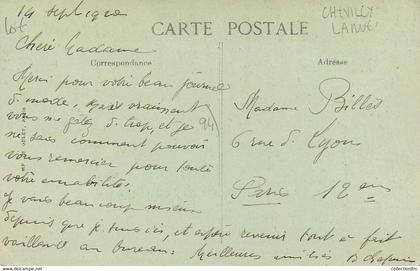 19 sept 1920
lot
CHEVILLY
LARUE
CARTE POSTALE
Chère Madame
Correspondance
Adresse
Merci pour votre beau journal
de mode, vraiment
vous me gâtez de trop, et je
94
ne sais comment pouvoir
vous remercier pour toute
votre amabilité.
Je vais beaucoup mieux
depuis que je suis ici, et espère revenir tout à fait
vaillante au bureau. Meilleures amitiés B
Madame Billet
6 rue de Lyon
Paris 12 em
collectiondfm